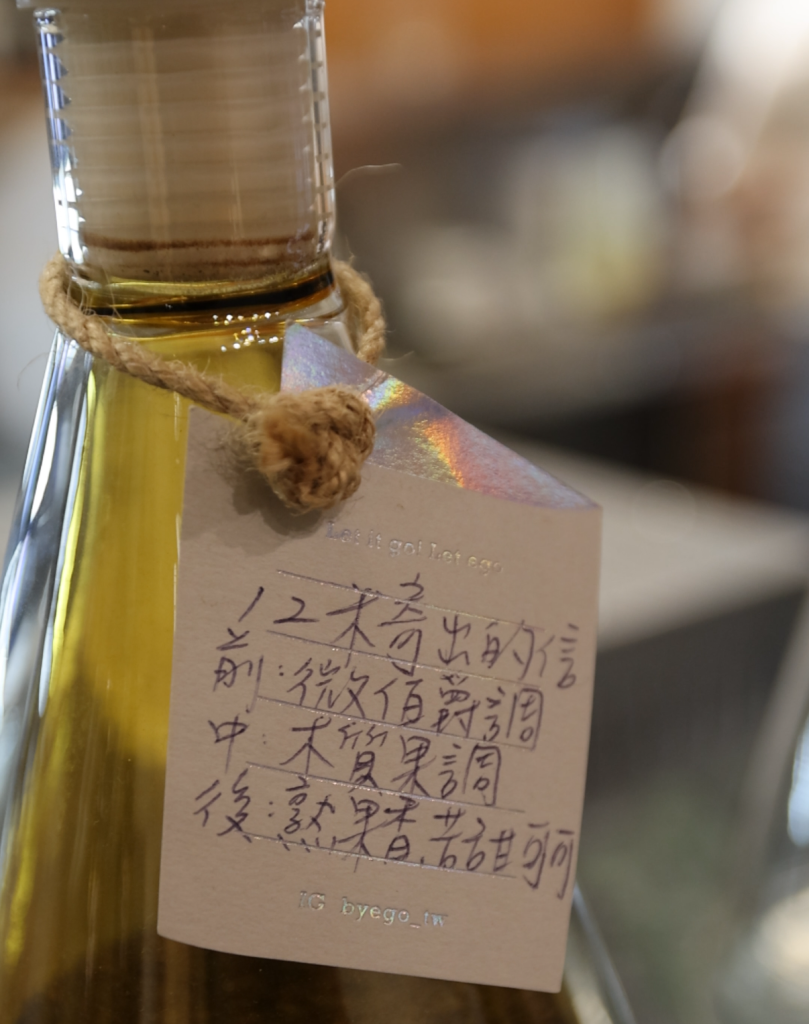 Let it go! Let ego
12 未寄出的信
前：微佰爵調
中：木質果調
後：熟果香.苦甜可可
IG byego_tw